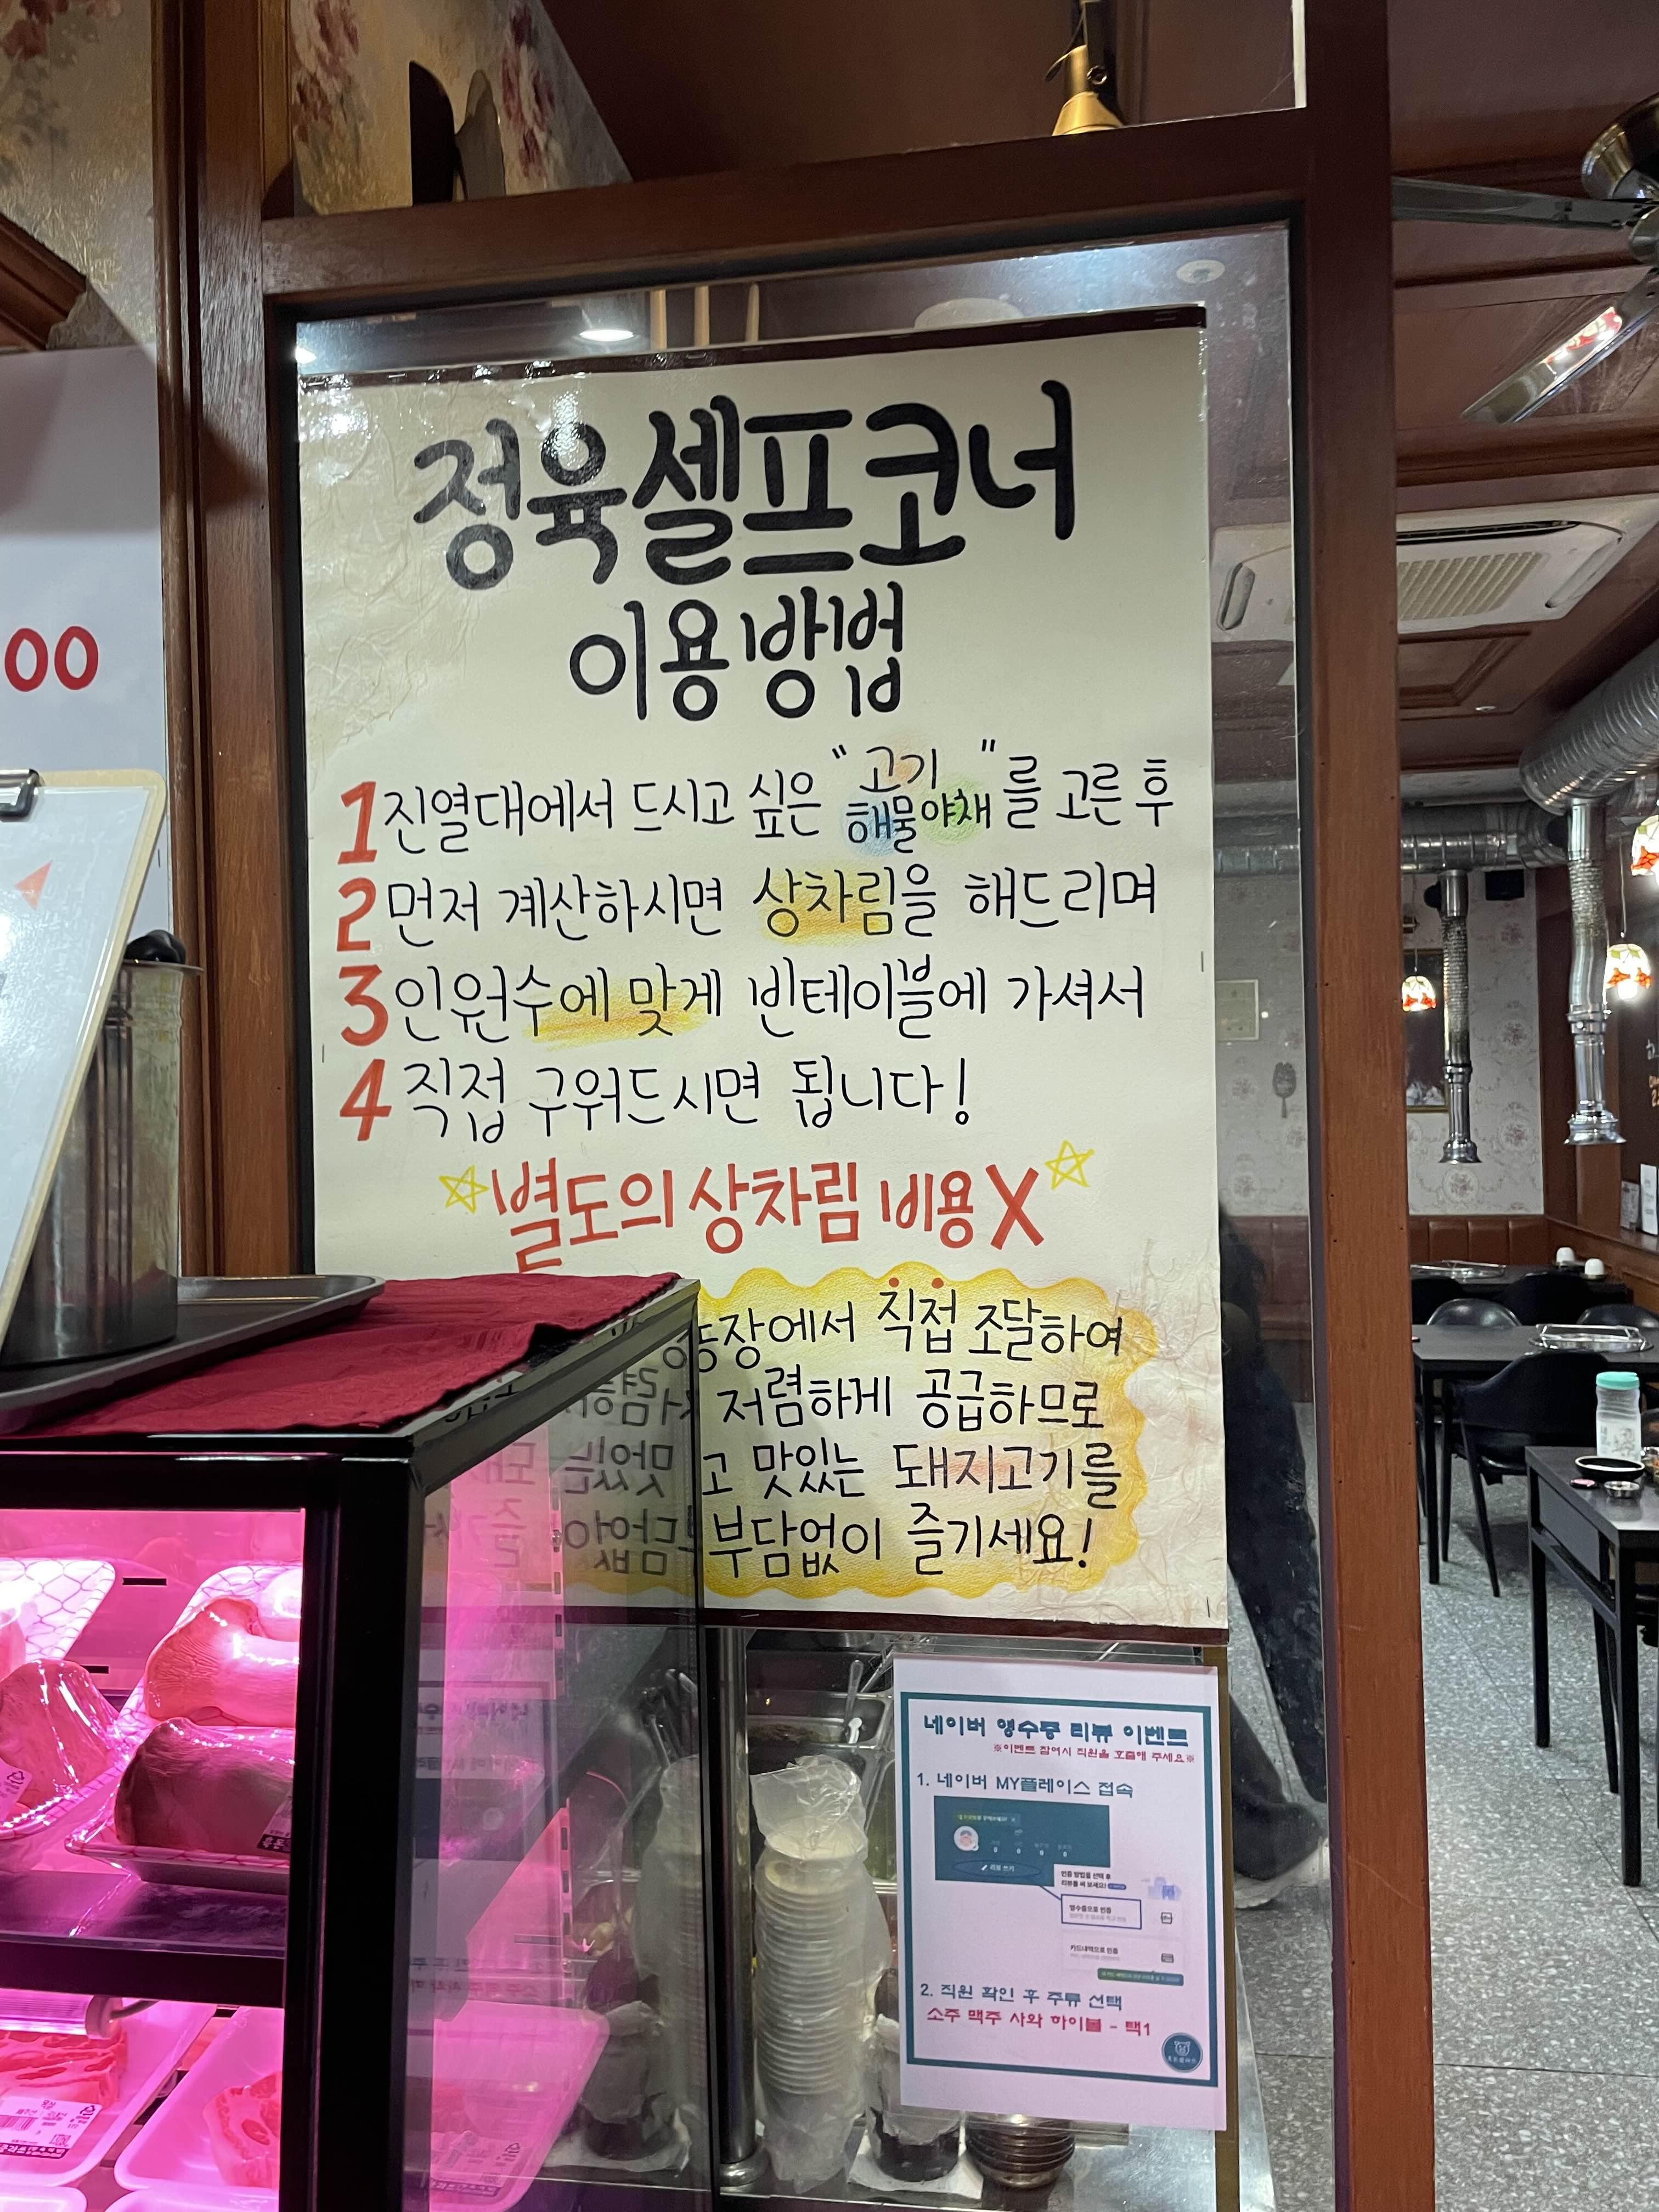 정육셀프코너
이용방법
1 진열대에서 드시고 싶은 "고기 해물야채"를 고른 후
2 먼저 계산하시면 상차림을 해드리며
3 인원수에 맞게 빈테이블에 가셔서
4 직접 구워드시면 됩니다!
☆별도의 상차림 비용 X☆
장에서 직접 조달하여
저렴하게 공급하므로
고 맛있는 돼지고기를
부담없이 즐기세요!
00
네이버 영수증 리뷰 이벤트
※이벤트 참여시 직원을 호출해 주세요※
1. 네이버 MY플레이스 접속
리뷰 쓰기
인증 방법을 선택 후
리뷰를 써 보세요!
영수증으로 인증
카드내역으로 인증
2. 직원 확인 후 주류 선택
소주 맥주 사와 하이볼 - 택1